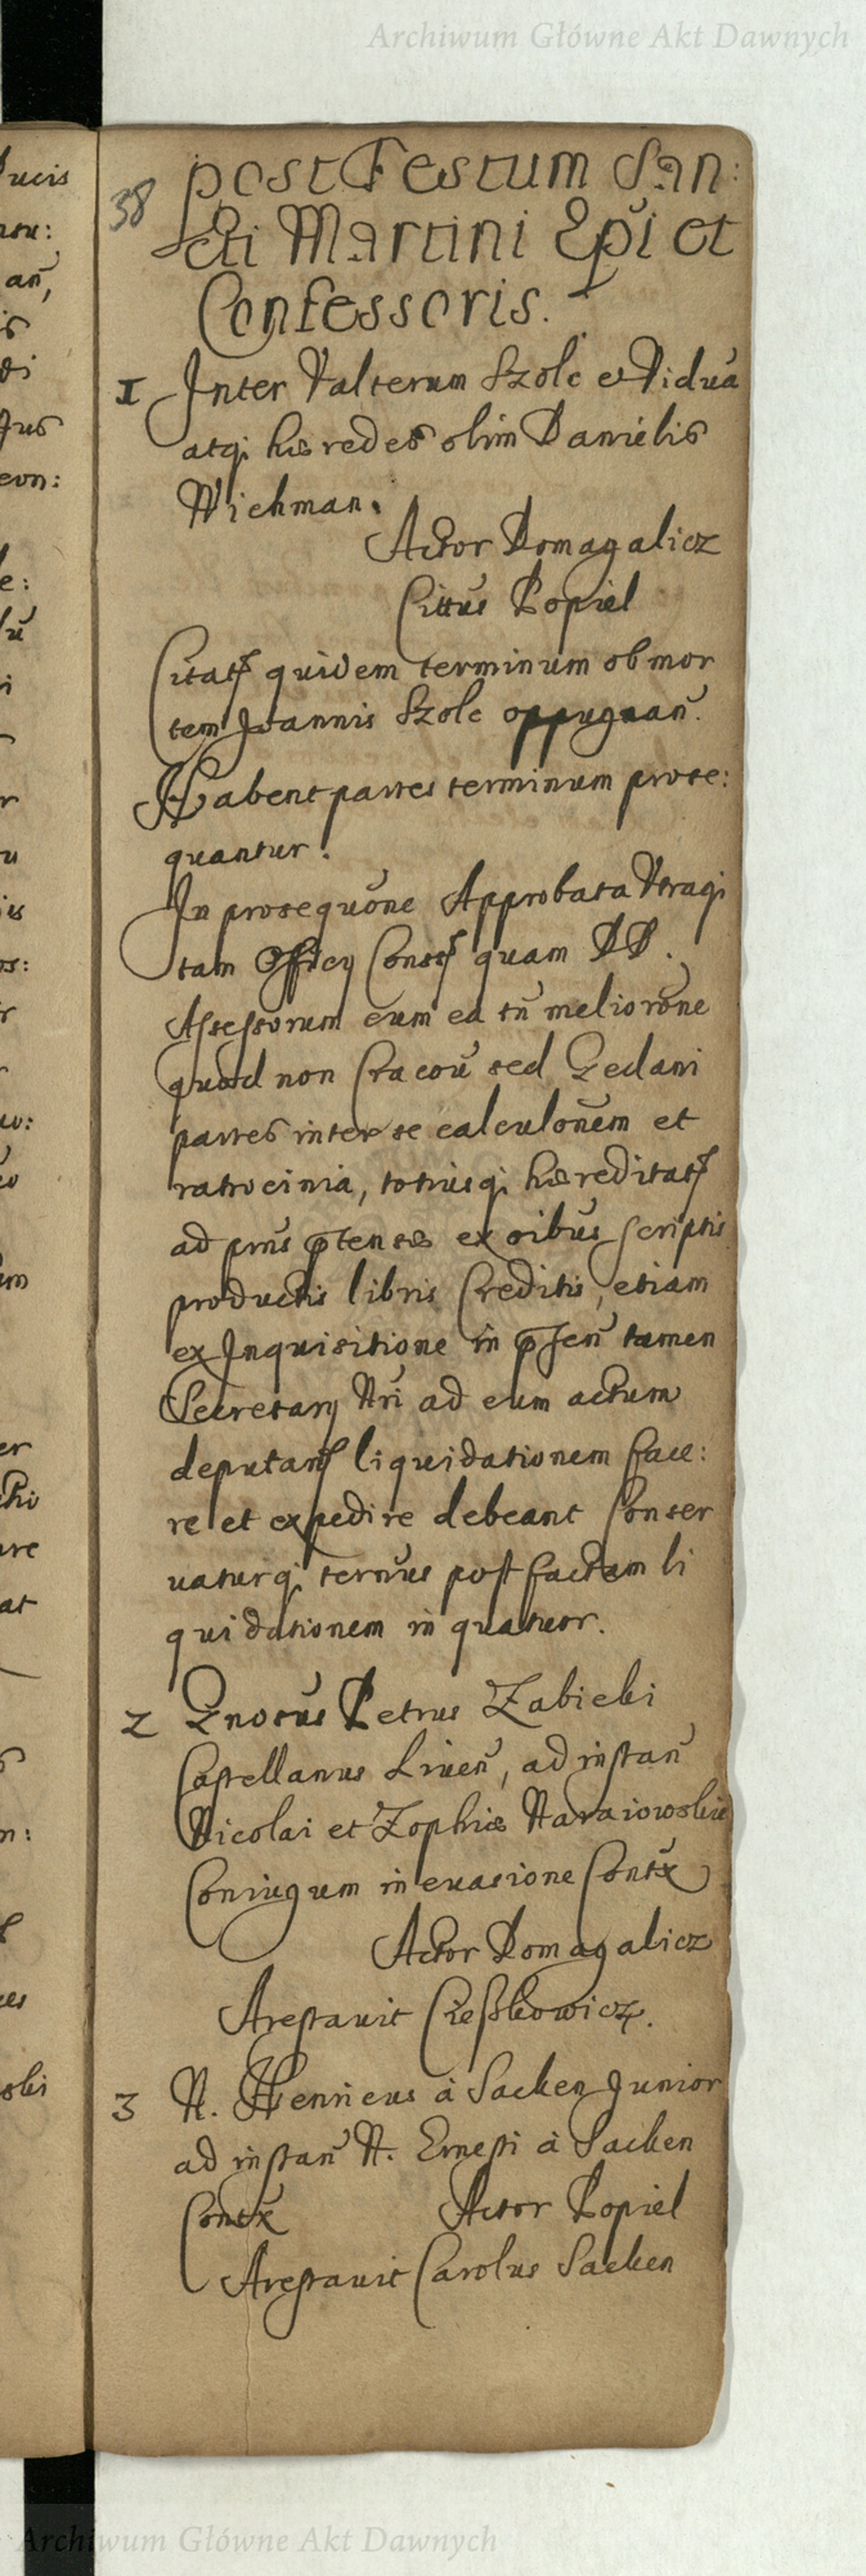 Archiwum Główne Akt Dawnych
38
post Festum San:
cti Martini Epi et
Confessoris.
1 Inter Valterum Szolc et Vidua
atqz hæredes olim Danielis
Wichman.
Actor Domagalicz
Cittus Popiel
Citat quidem terminum ob mor
tem Joannis Szolc oppugnan.
Habent partes terminum prose:
quantur.
In prosequone Approbata Utraqz
tam Officy Const quam DD.
Assessorum cum ea tn meliorone
quod non Cracou sed Gedani
partes inter se calculonem et
ratiocinia, totiusqz hæreditat
ad prns ptensæ ex oibus scriptis
productis libris Creditis, etiam
ex Inquisitione in psen tamen
Secretarij Nri ad eum actum
deputan liquidationem face:
re et expedire debeant Conser
uaturqz ternus post factam li
quidationem in quatuor.
2 Gnosus Petrus Zabicki
Castellanus Liuen, ad instan
Nicolai et Zophiæ Naraiowskie
Coniugum in euasione Contx
Actor Domagalicz
Arestauit Cieszkowicz.
3 N. Henricus à Sacken Junior
ad instan N. Ernesti à Sacken
Contx Actor Popiel
Arestauit Carolus Sacken
Archiwum Główne Akt Dawnych